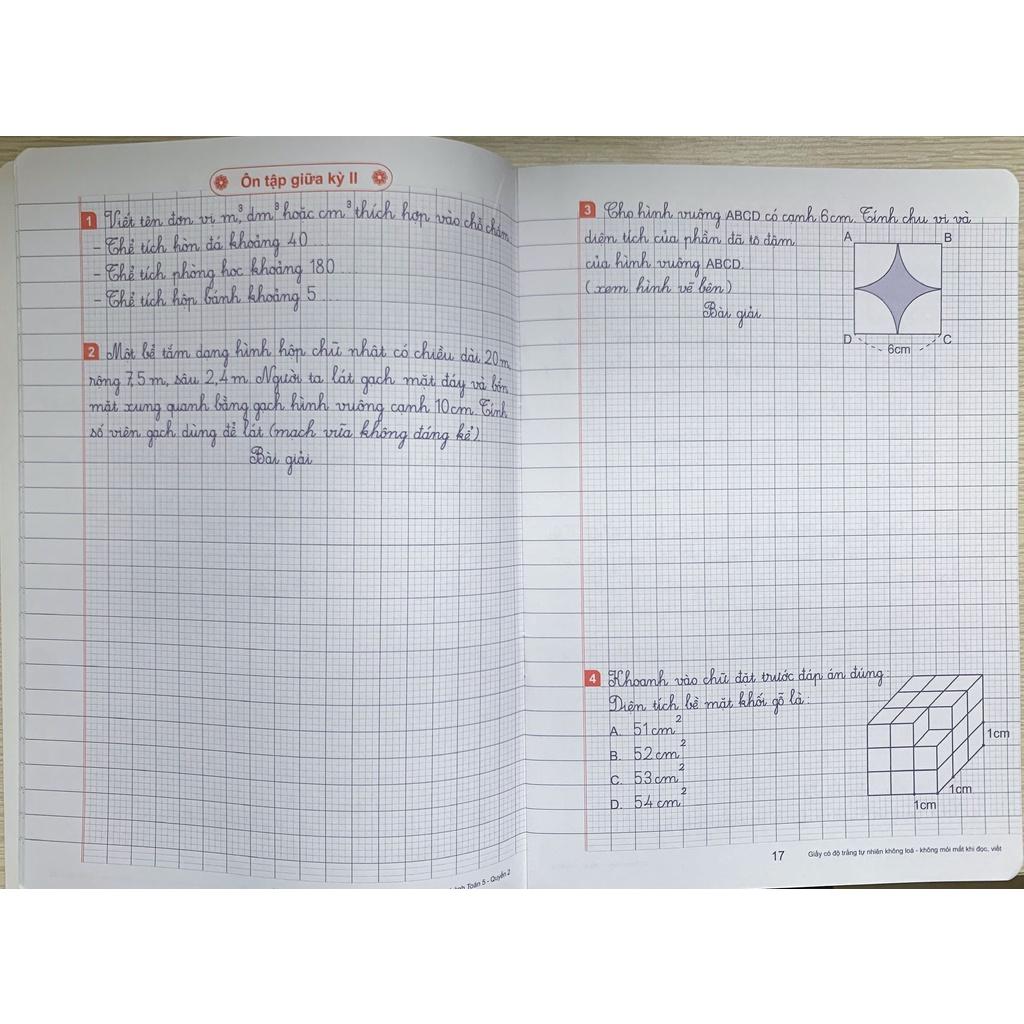 Ôn tập giữa kỳ II
1 Viết tên đơn vị m³, dm³ hoặc cm³ thích hợp vào chỗ chấm
- Thể tích hòn đá khoảng 40 ...
- Thể tích phòng học khoảng 180 ...
- Thể tích hộp bánh khoảng 5 ...
2 Một bể tắm dạng hình hộp chữ nhật có chiều dài 20m,
rộng 7,5m, sâu 2,4m. Người ta lát gạch mặt đáy và bốn
mặt xung quanh bằng gạch hình vuông cạnh 10cm. Tính
số viên gạch dùng để lát (mạch vữa không đáng kể)
Bài giải
3 Cho hình vuông ABCD có cạnh 6cm. Tính chu vi và
diện tích của phần đã tô đậm
của hình vuông ABCD.
(xem hình vẽ bên)
Bài giải
A B
D C
6cm
4 Khoanh vào chữ đặt trước đáp án đúng:
Diện tích bề mặt khối gỗ là:
A. 51cm²
B. 52cm²
C. 53cm²
D. 54cm²
1cm
1cm
1cm
17 Giấy có độ trắng tự nhiên không loá - không mỏi mắt khi đọc, viết
Toán 5 - Quyển 2